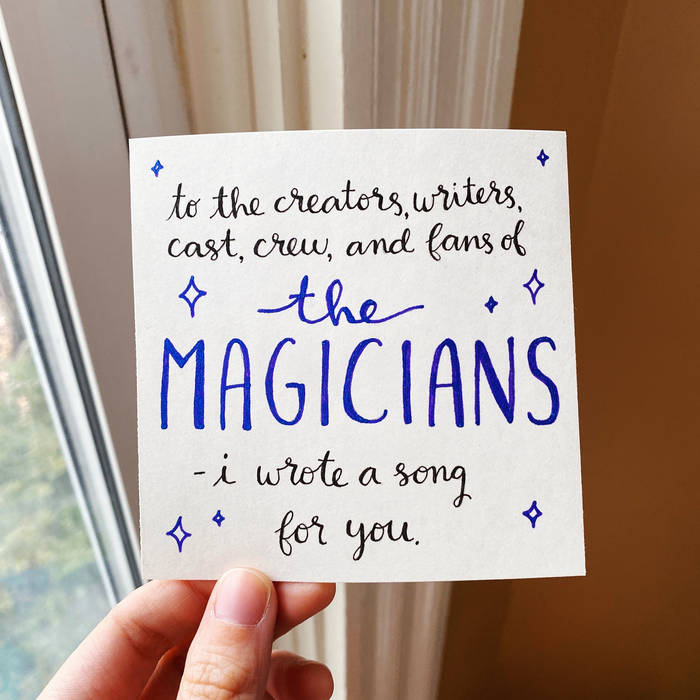 to the creators, writers,
cast, crew, and fans of
the
MAGICIANS
- i wrote a song
for you.